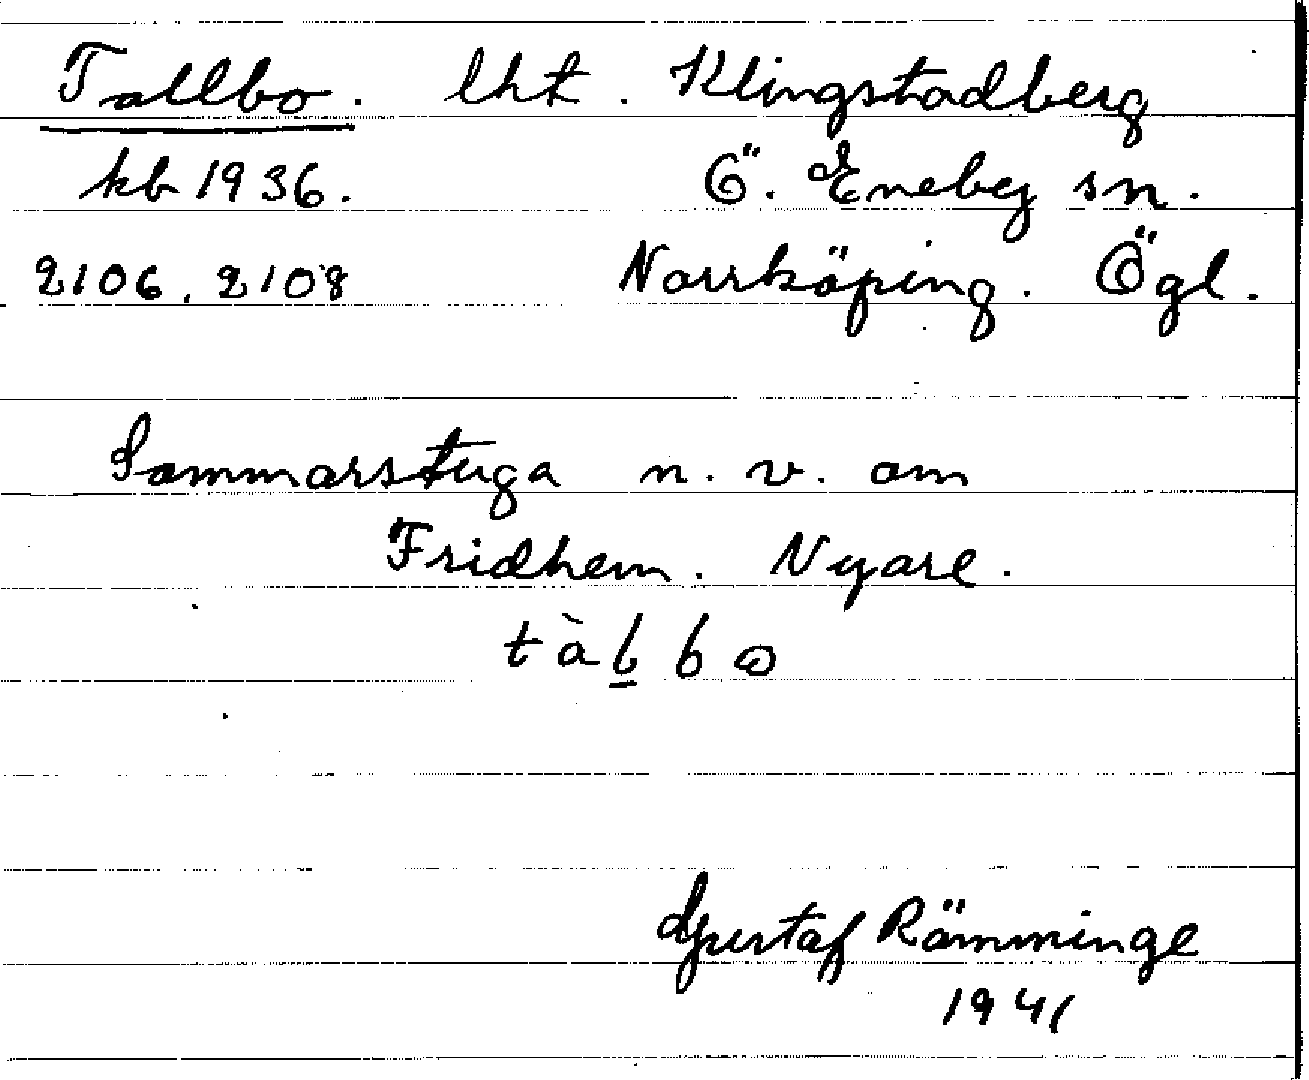 Tallbo. lht. Klingstadberg
kb 1936. Ö. Eneby sn.
2106, 2108 Norrköping. Ögl.
Sommarstuga n. v. om
Fridhem. Nyare.
tàl̲ b o
Gustaf Ramminge
1941